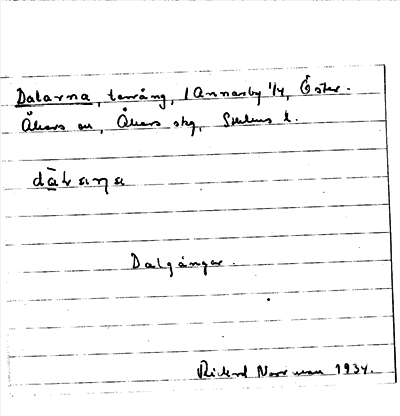 Dalarna, terräng, i Annarby 1/4, Öster-
Åkers sn, Åkers skg, Sthlms l.
Dalgångar.
Rickard Norrman 1934.